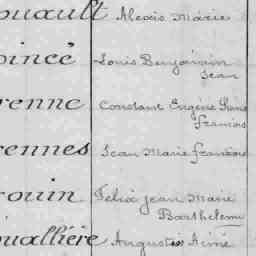 ouault Alexis Marie
oincé Louis Benjamin
Jean
renne Constant Eugène
François
rennes Jean Marie François
rouin Felix Jean Marie
Barthelemi
oualliére Auguste Aimé